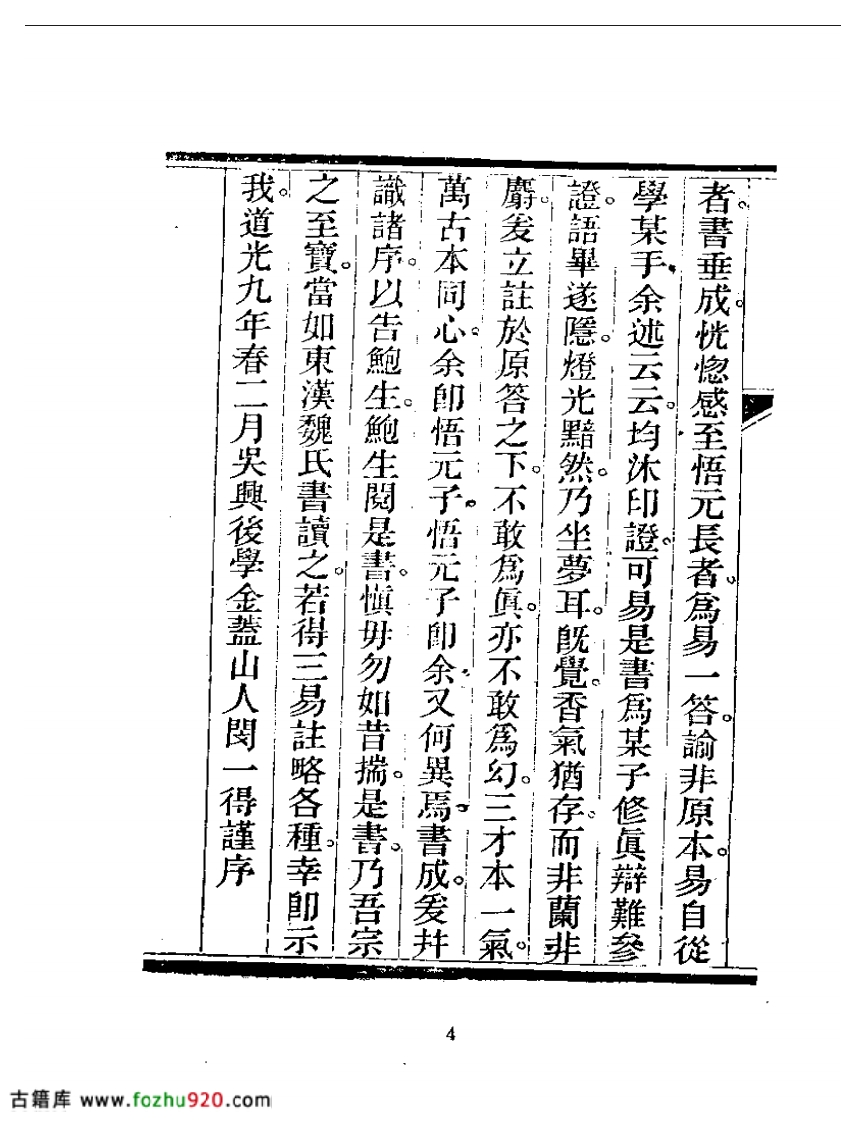 者。書垂成。恍惚感至悟元長者。爲易一答。諭非原本。易自從
學某手。余述云云。均沐印證。可易是書爲某子修眞辯難參
證。語畢遂隱。燈光黯然。乃坐夢耳。旣覺。香氣猶存。而非蘭非
麝。爰立註於原答之下。不敢爲眞。亦不敢爲幻。三才本一氣。
萬古本同心。余卽悟元子。悟元子卽余。又何異焉。書成。爰幷
識諸序。以告鮑生。鮑生閱是書。愼毋勿如昔揣。是書。乃吾宗
之至寶。當如東漢魏氏書讀之。若得三易註略各種。幸卽示
我。道光九年春二月吳興後學金蓋山人閔一得謹序
4
古籍库 www.fozhu920.com